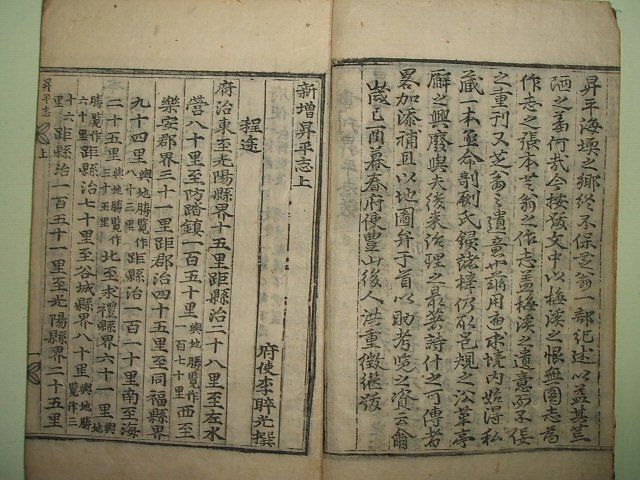 昇平海壖之鄉終不保芝翁一部紀述以益其荒
陋之羞何哉今按跋文中以梅溪之恨無圖志者
作志之張本芝翁之作志盖梅溪之遺意而不佞
之重刊又芝翁之遺意也用通求境内始得私
藏一本並命剞劂氏鋟諸梓仍舊規之沿革亭
廨之興廢與夫後來治理之最著詩什之可傳者
畧加添補且以地圖弁于首以助考覽之資云爾
歲己酉暮春府使豊山後人洪重徵継跋
新增昇平志上
程途
府使李睟光撰
府治東至光陽縣界十五里距縣治二十八里至左水
營八十里至防踏鎮一百五十里輿地勝覽作一百七十里西至
樂安郡界三十一里距郡治四十五里至同福縣界
九十四里輿地勝覽作距縣治一百一十里南至海
二十五里輿地勝覽作北至求禮縣界六十一里輿地
勝覽作六十里距縣治七十里至谷城縣界八十里輿地勝覽作三
十六里距縣治一百五十一里至光陽縣界二十五里
昇平志 上 一